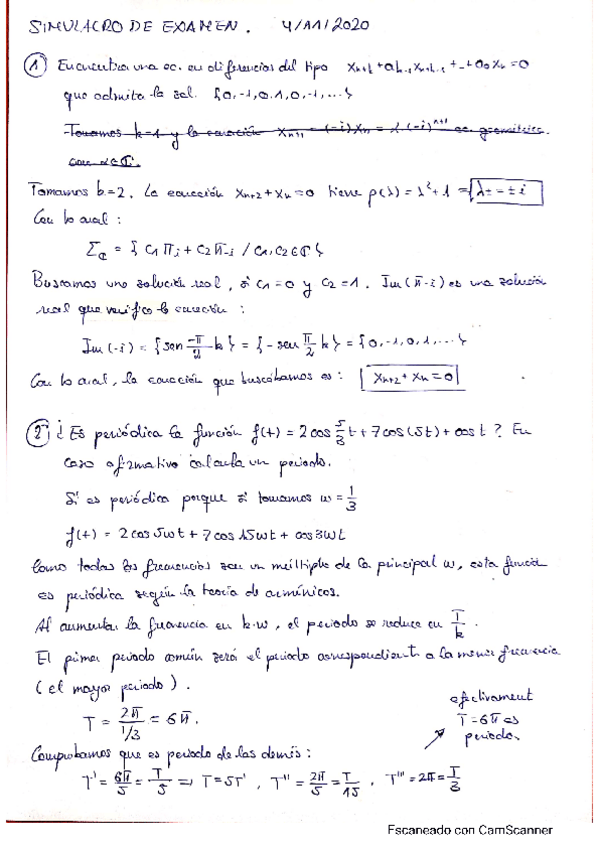 SIMULACRO DE EXAMEN. 4/11/2020
① Encuentra una ec. en diferencias del tipo x_{n+k} + a_{k-1}x_{n+k-1} + ... + a_0 x_n = 0
que admita la sol. {0,-1,0,1,0,-1,...}
Tomamos k=1 y la ecuación x_{n+1} = (-i)x_n = λ·(-i)^{n+1} ec. geométrica
con λ∈ℂ.
Tomamos k=2. La ecuación x_{n+2} + x_n = 0 tiene p(λ) = λ² + 1 = λ = ± i
Con lo cual:
Σ_ℂ = { c_1 π_i + c_2 π_{-i} / c_1, c_2 ∈ ℂ }
Buscamos una solución real, si c_1 = 0 y c_2 = 1. Im(π_{-i}) es una solución
real que verifica la ecuación:
Im(-i) = {sen \frac{-π}{2} k} = {-sen \frac{π}{2} k} = {0,-1,0,1,...}
Con lo cual, la ecuación que buscábamos es: x_{n+2} + x_n = 0
② ¿Es periódica la función f(t) = 2cos \frac{5}{3}t + 7cos(5t) + cos t? En
caso afirmativo calcula un periodo.
Sí es periódica porque si tomamos w = \frac{1}{3}
f(t) = 2cos 5wt + 7cos 15wt + cos 3wt
Como todas las frecuencias son un múltiplo de la principal w, esta función
es periódica según la teoría de armónicos.
Al aumentar la frecuencia en k·w, el periodo se reduce en \frac{T}{k}.
El primer periodo común será el periodo correspondiente a la menor frecuencia
(el mayor periodo).
T = \frac{2π}{1/3} = 6π.
efectivament
T = 6π es
periodo.
Comprobamos que es periodo de las demás:
T' = \frac{6π}{5} = \frac{T}{5} => T = 5T', T'' = \frac{2π}{5} = \frac{T}{15}, T''' = 2π = \frac{T}{3}
Escaneado con CamScanner